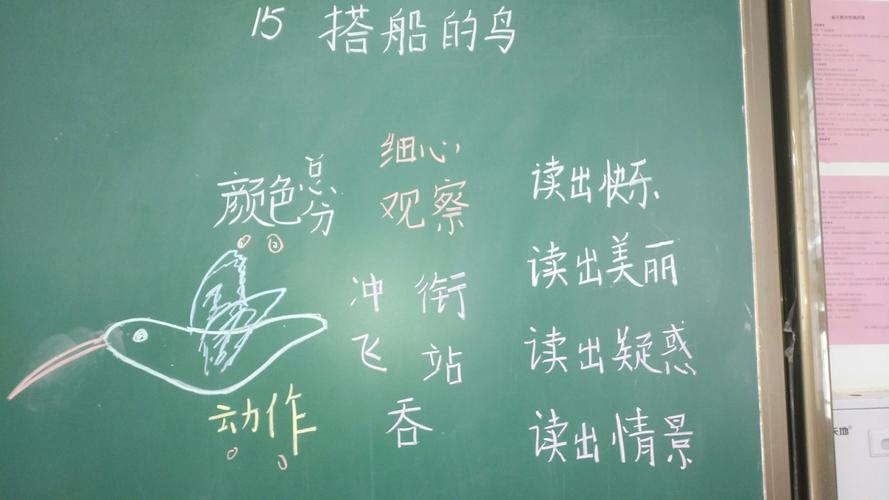 15 搭船的鸟
颜色 总分
细心
观察
冲 衔
飞 站
吞
动作
读出快乐
读出美丽
读出疑惑
读出情景
天地